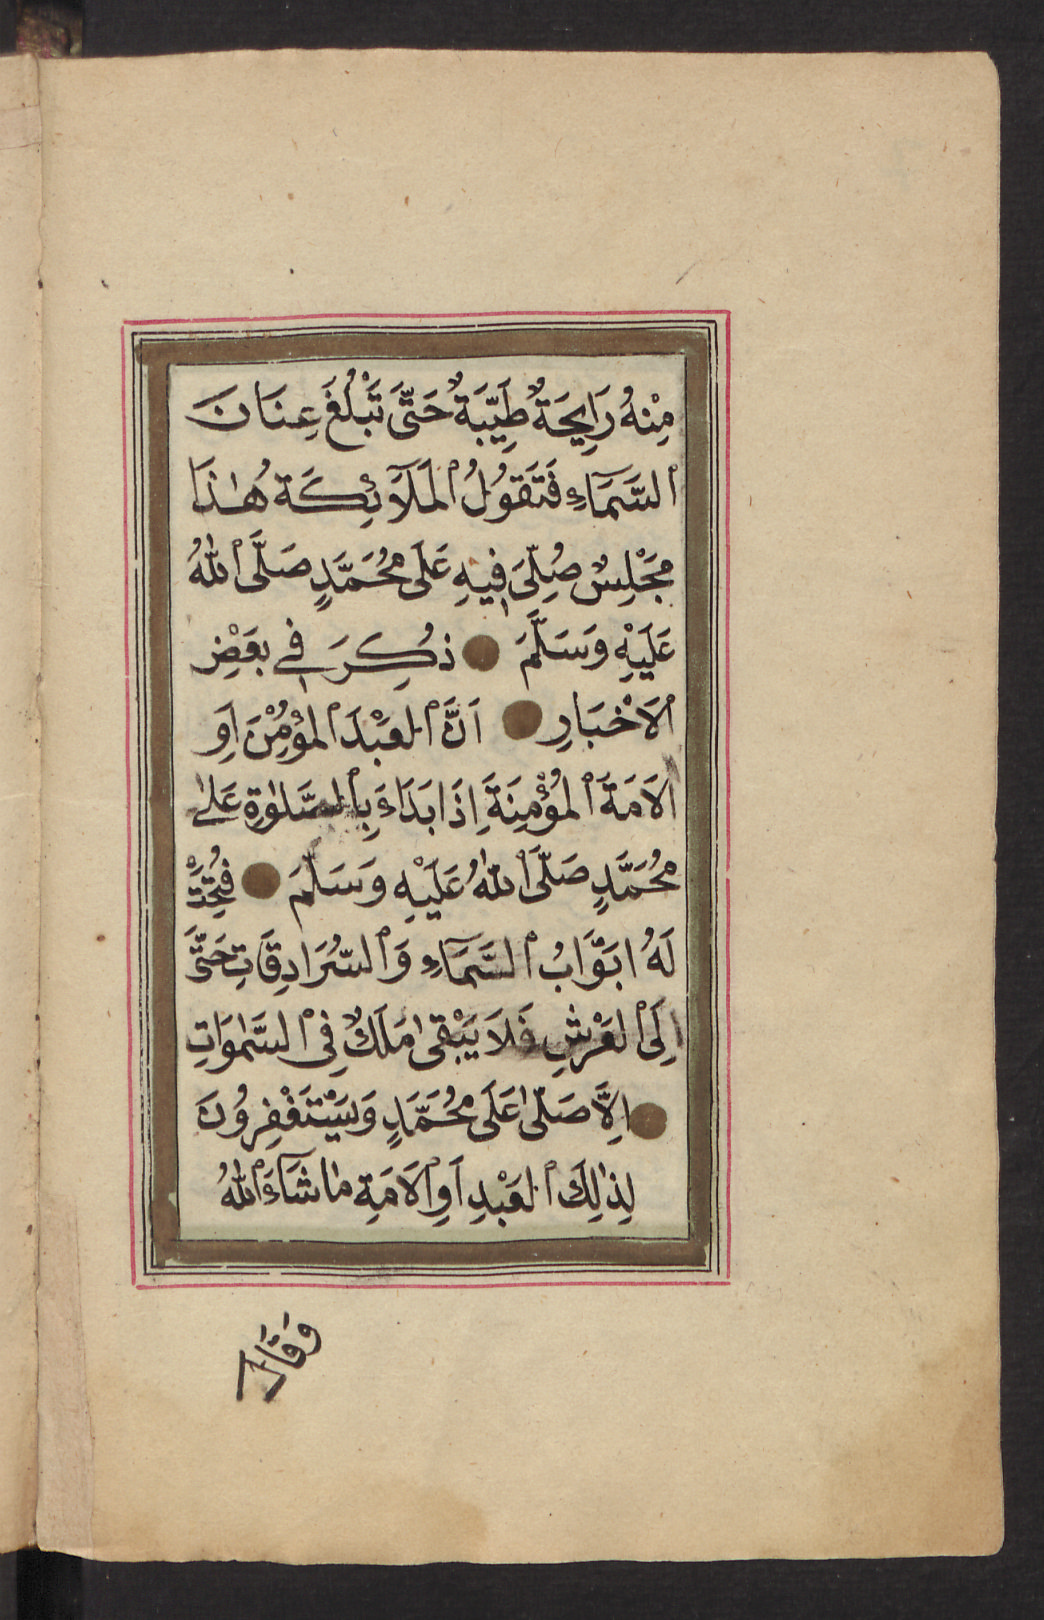 مِنْهُ رَايِحَةٌ طَيِّبَةٌ حَتَّى تَبْلُغَ عِنَانَ
ٱلسَّمَآءِ فَتَقُولُ ٱلْمَلَآئِكَة هٰذَا
مَجْلِسٌ صُلِّىَ فِيهِ عَلَى مُحَمَّدٍ صَلَّى ٱللّٰهُ
عَلَيْهِ وَسَلَّمَ ذُكِرَ فِي بَعْضِ
ٱلاَخْبَارِ اَنَّ ٱلعَبْدَ ٱلمُؤْمِنَ اَوِ
ٱلاَمَةَ ٱلمُؤْمِنَةَ اِذَا بَدَاءَ بِٱلصَّلٰوةِ عَلىٰ
مُحَمَّدٍ صَلَّى ٱللّٰهُ عَلَيْهِ وَسَلَّمَ فُتِحَتْ
لَهُ ابَوَّابُ ٱلسَّمَآءِ وَٱلسُّرَادِقَاتِ حَتَّى
اِلَى ٱلعَرْشِ فَلاَ يَبْقىٰ مَلَكٌ فِى ٱلسَّمٰوَاتِ
اِلاَّ صَلّىٰ عَلَى مُحَمَّدٍ وَيَسْتَغْفِرُونَ
لِذٰلِكَ ٱلعَبْدِ اَوِ ٱلاَمَةِ مَا شَآءَ ٱللّٰهُ
وَقَالَ